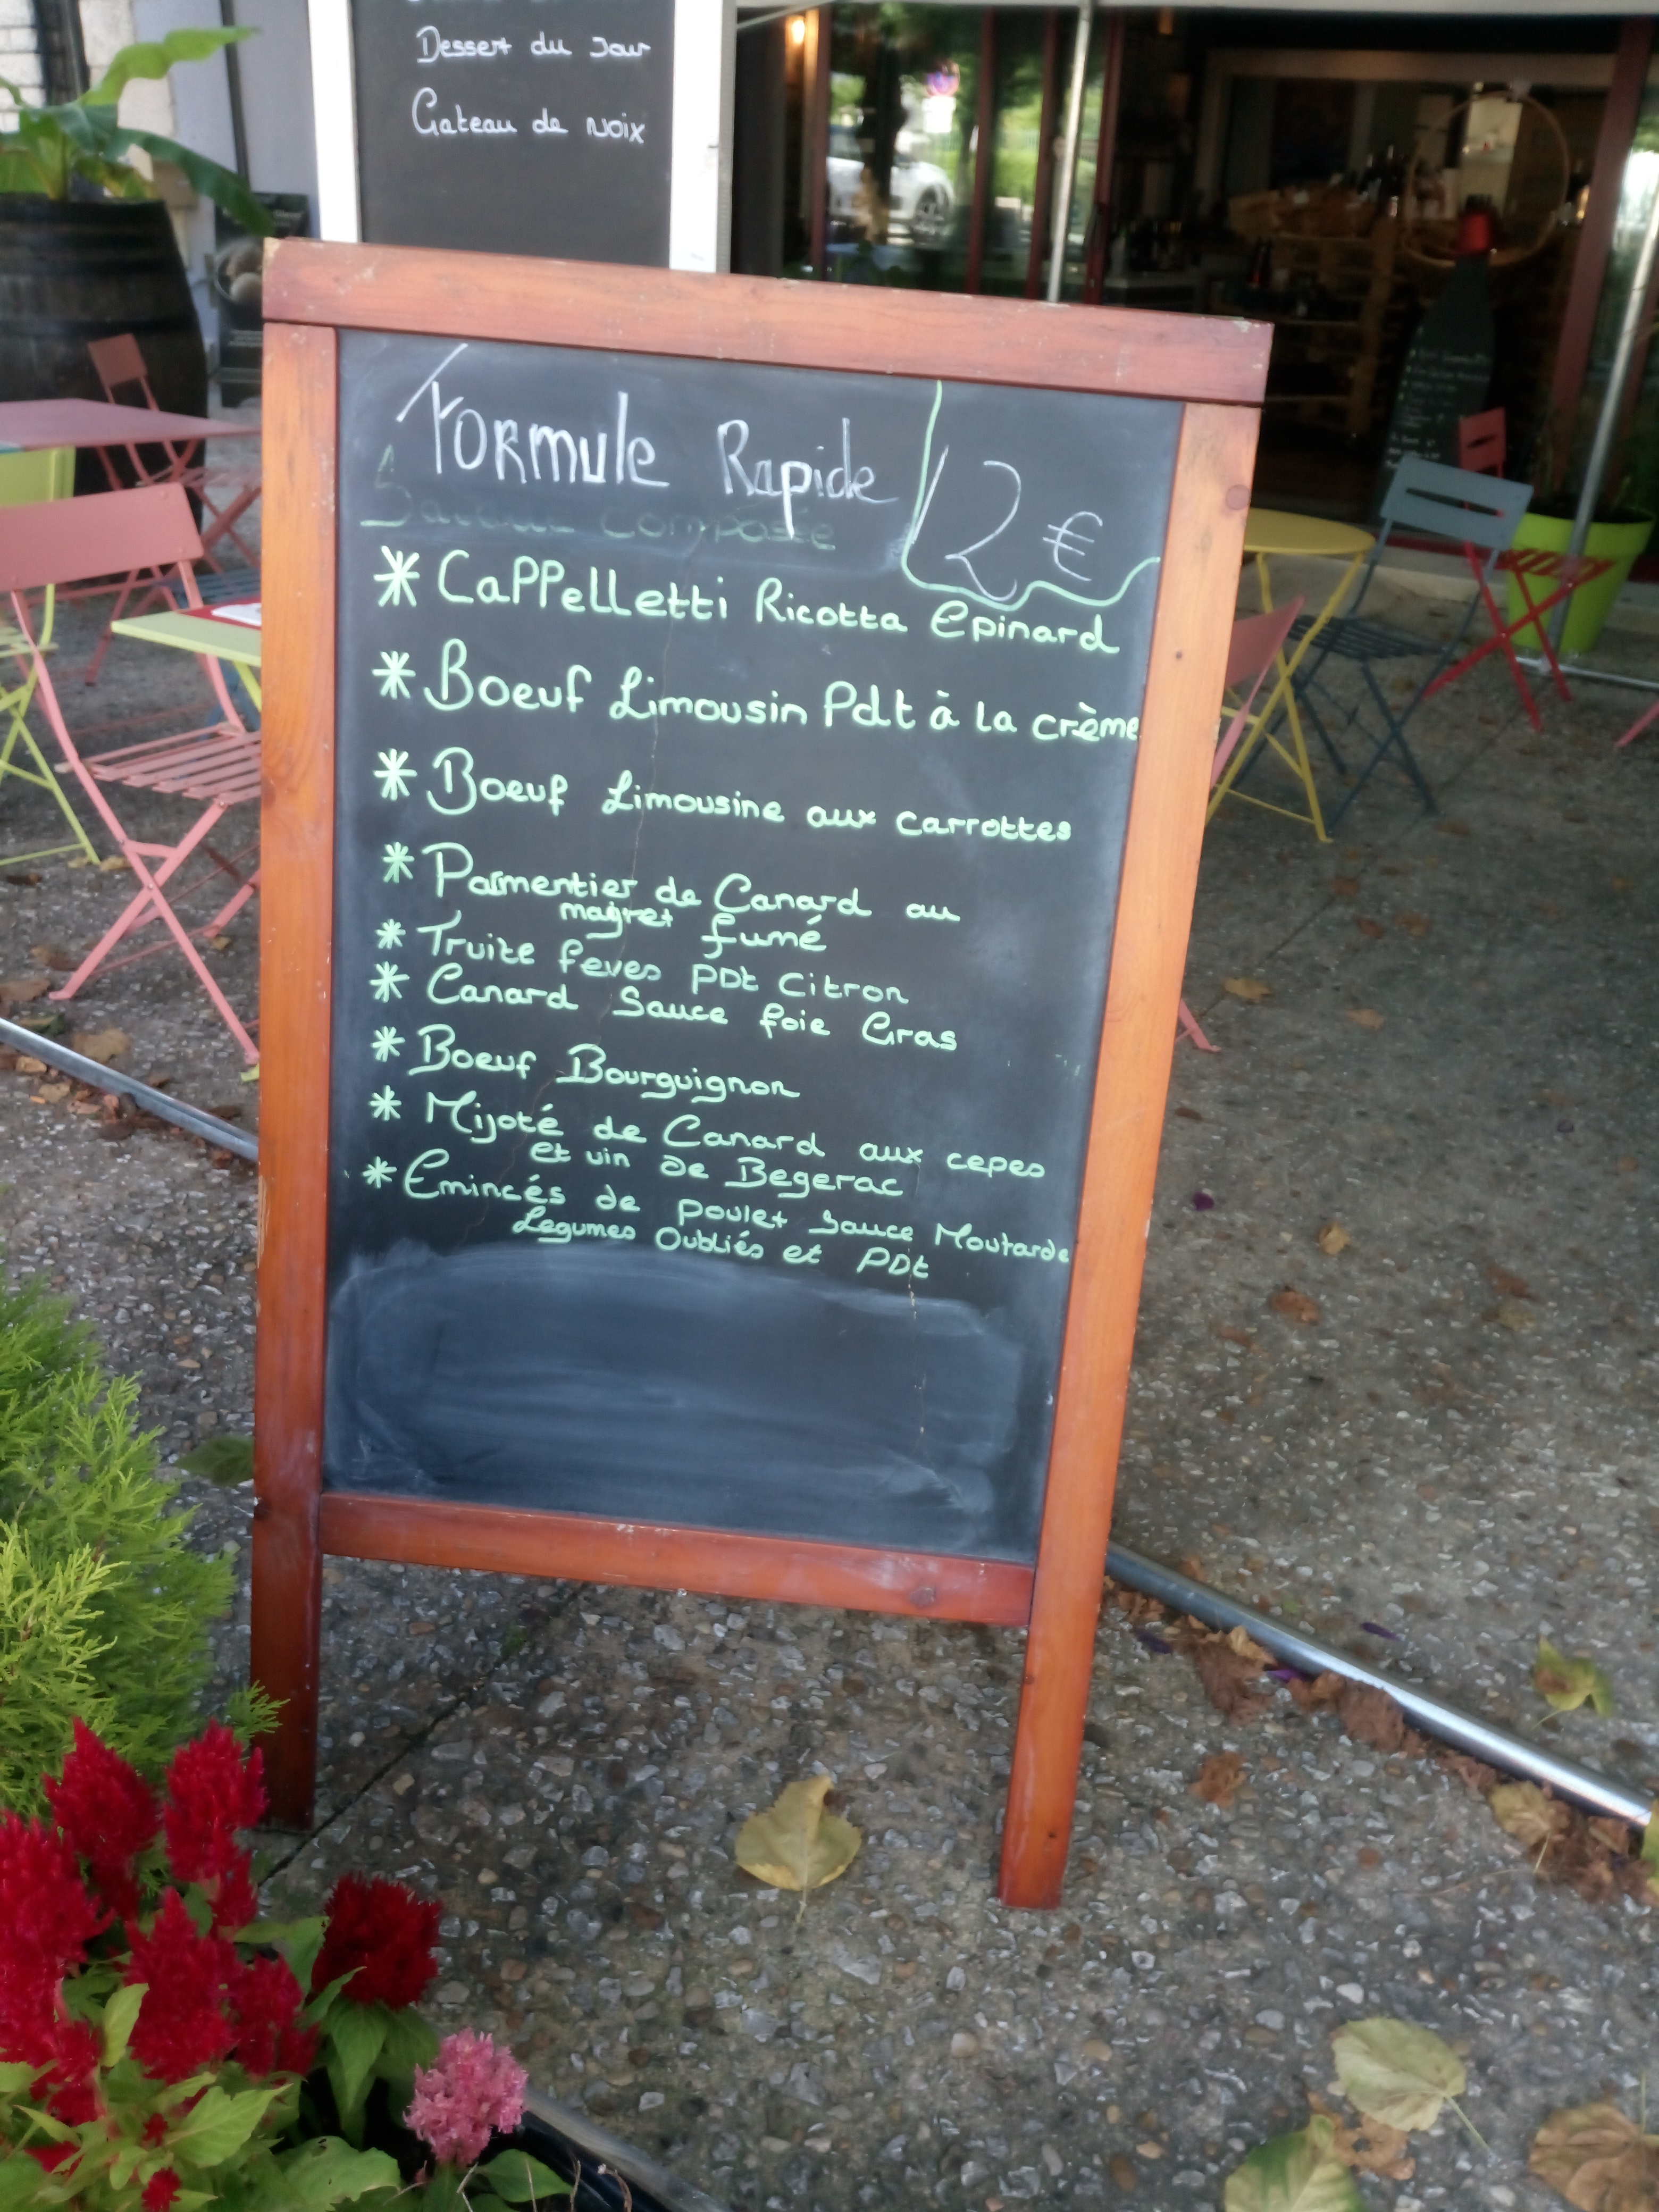 Dessert du Jour
Gateau de Noix
Formule Rapide
12 €
Salade composée
* Cappelletti Ricotta Epinard
* Boeuf Limousin Pdt à la crème
* Boeuf Limousine aux carrottes
* Parmentier de Canard au
magret fumé
* Truite feves PDt Citron
* Canard Sauce foie Gras
* Boeuf Bourguignon
* Mijoté de Canard aux cepes
et vin de Begerac
* Emincés de poulet Sauce Moutarde
Legumes Oubliés et PDt